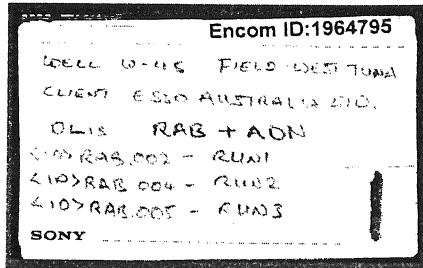 Encom ID:1964795
WELL W-45 FIELD WEST TUNA
CLIENT ESSO AUSTRALIA LTD.
DLIS RAB + ADN
<10>RAB.002 - RUN1
<10>RAB.004 - RUN2
<10>RAB.005 - RUN3
SONY